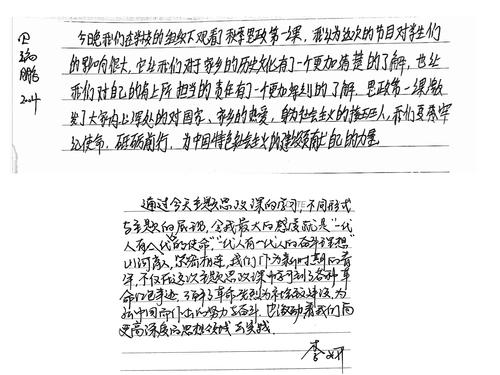 今晚我们在学校的组织下观看了秋季思政第一课,我认为这次的节目对学生们
的影响很大,它让我们对于家乡的历史文化有了一个更加清楚的了解,也让
我们对自己的肩上所担当的责任有了一个更加深刻的了解,思政第一课激
发了大家内心深处的对国家、家乡的热爱,身为社会主义的接班人,我们要牢
记使命,砥砺前行,为中国特色社会主义的建设贡献上自己的力量
通过今天主题思政课的学习,不同形式
与主题的展现,令我最大的感受就是“一代
人有一代人的使命”,“一代人有一代人的奋斗”理想
山河育人,紧密相连,我们作为新时期的青
年,不仅在这次主题思政课中学习到了各种革
命红色事迹,了解了革命先烈为社会主义建设,为
新中国而付出的努力与奋斗,也激励着我们向
更高深度的思想领域去实践
李妍